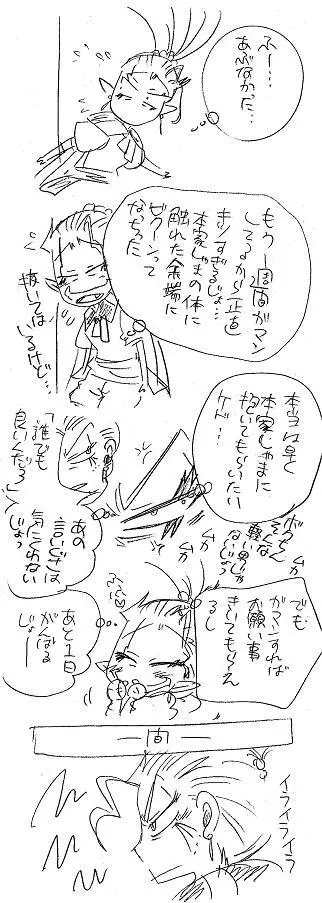 ふー…
あぶなかった…
もう一週間ガマン
してるから正直
キツすぎるじょ…
本家じゃまの体に
触れた余端に
ビクーンって
なっちった
抜いては
いるけど…
本当は早く
本家じゃまに
抱いてもらいたい
ケド…
「誰でも
良いんだろ」
あの
言いぐさは
気にくわない
じょっ
ボクちん
そんな
軽い男じゃ
ないじょ
ムカ
ムカ
でも
ガマンすれば
お願い事
きいてもらえ
るし
あと1日
がんばる
じょー
一間一
イライライラ